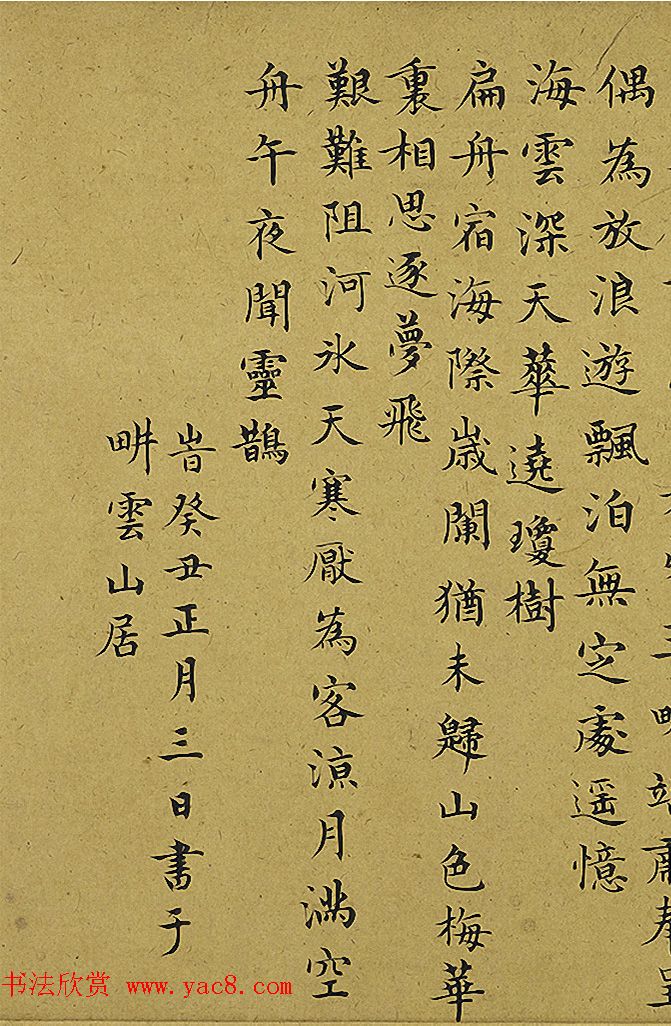 偶為放浪遊飄泊無㝎處遥憶
海雲深天華遶瓊樹
扁舟宿海際歳闌猶未歸山色梅華
裏相思逐夢飛
艱難阻河氷天寒厭為客涼月滿空
舟午夜聞靈鵲
旹癸丑正月三日書于
畊雲山居
书法欣赏 www.yac8.com